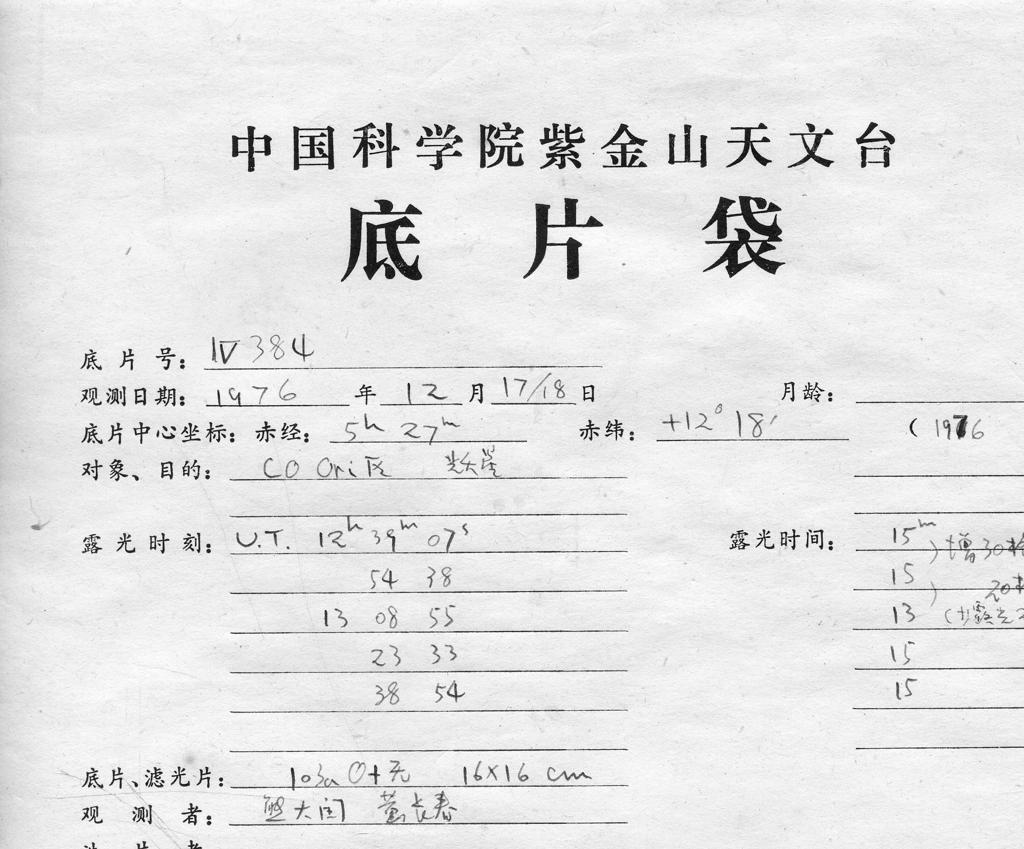 中国科学院紫金山天文台
底片袋
底片号: IV 384
观测日期: 1976年12月17/18日 月龄:
底片中心坐标: 赤经: 5h 27m 赤纬: +12° 18′ (1976
对象、目的: CO Ori区
露光时刻: U.T. 12h 39m 07s 露光时间: 15m
54 38 15
13 08 55 13
23 33 15
38 54 15
底片、滤光片: 103a O+无 16×16 cm
观测者: 熊大闰 董长春